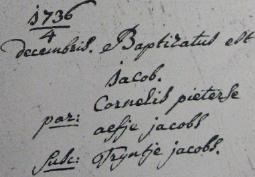 1736
4
decembris. Baptizatus est
jacob.
Cornelis pieterse
par: aefje jacobs
susc: Tryntje jacobs.